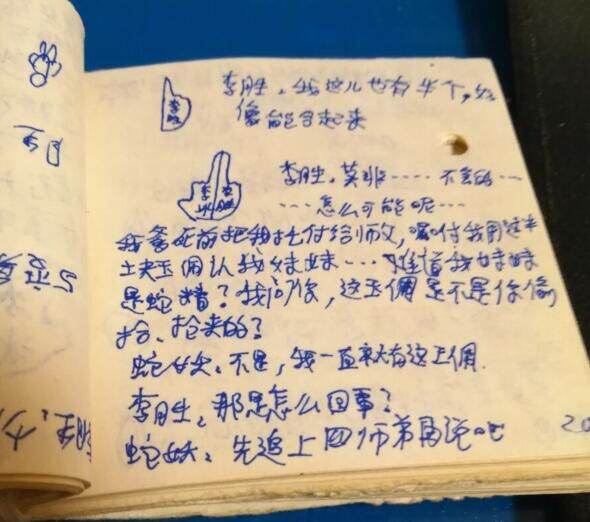 李胜
李胜,我这儿也有半个,好
像能合起来
李 李
冰 胜
李胜,莫非……不会的…
…怎么可能呢…
我爹死前把我托付给师父,嘱付我用这半
块玉佩认我妹妹…难道我妹妹
是蛇精?我问你,这玉佩是不是你偷
抢来的?
蛇妖:不是,我一直就有这玉佩
李胜:那是怎么回事?
蛇妖:先追上四师弟再说吧
20